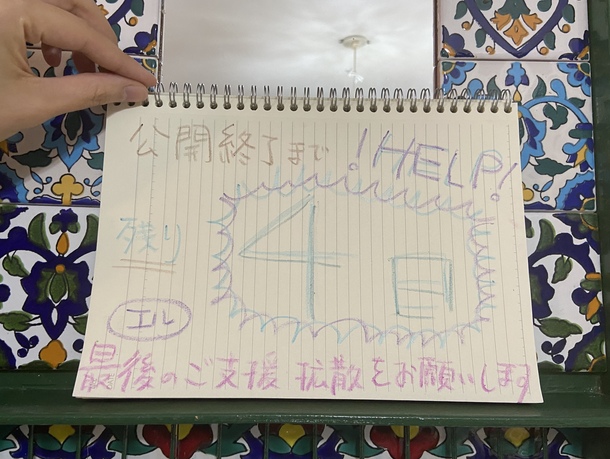 公開終了まで
!HELP!
残り
4日
エル
最後のご支援 拡散をお願いします